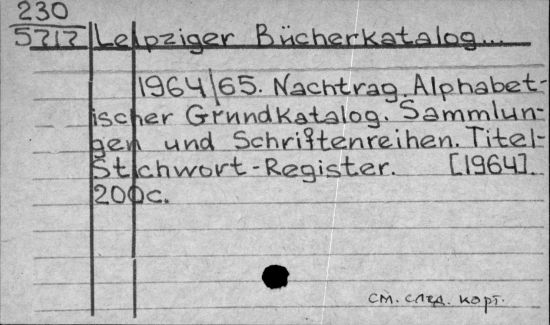 230
5717 Leipziger Bücherkatalog...
1964/65. Nachtrag. Alphabet-
ischer Grundkatalog. Sammlun-
gen und Schriftenreihen. Titel-
Stichwort-Register. [1964].
200с.
см. след. карт.